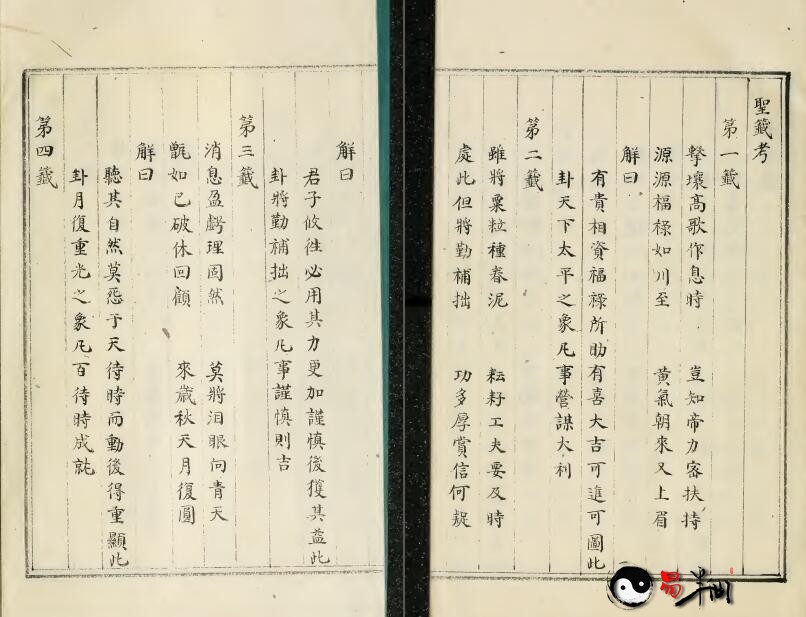 聖籤考
第一籤
擊壤高歌作息時 豈知帝力密扶持
源源福祿如川至 黃氣朝來又上眉
解曰
有貴相資福祿所助有喜大吉可進可圖此
卦天下太平之象凡事營謀大利
第二籤
雖將粟粒種春泥 耘耔工夫要及時
處此但將勤補拙 功多厚賞信何疑
解曰
君子攸往必用其力更加謹慎後獲其益此
卦將勤補拙之象凡事謹慎則吉
第三籤
消息盈虧理固然 莫將泪眼向青天
甑如已破休回顧 來歲秋天月復圓
解曰
聽其自然莫怨于天待時而動後得重顯此
卦月復重光之象凡百待時成就
第四籤
易